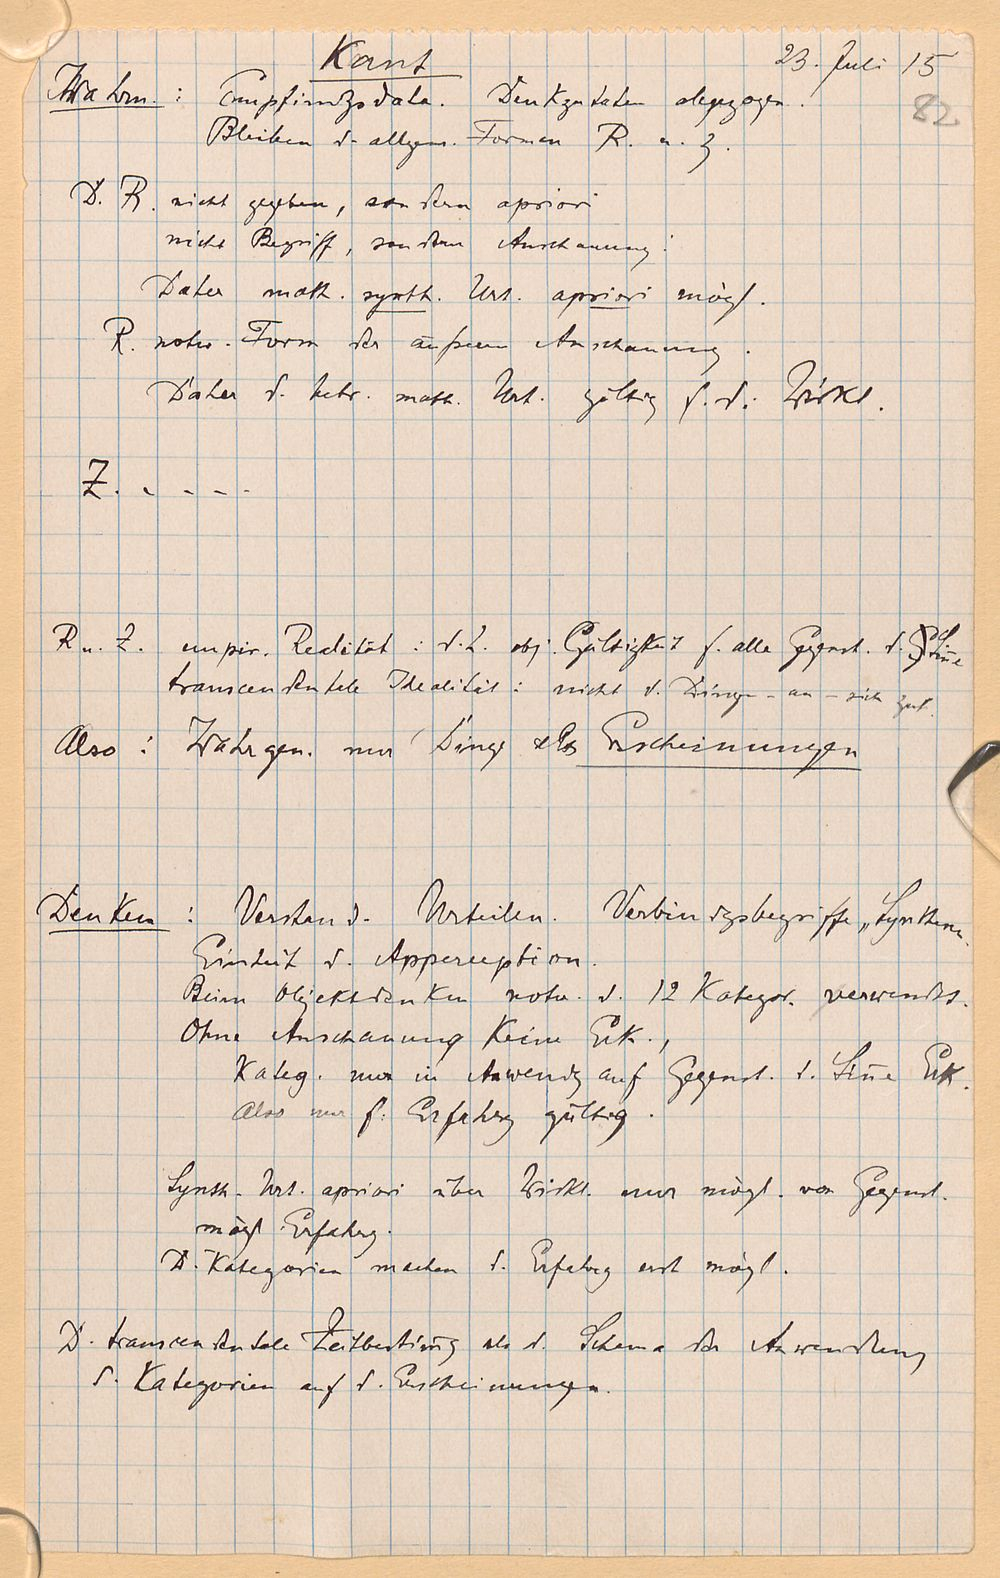 Kant 23. Juli 15
82
Wahrn.: Empfindgsdata. Denkzutaten abgezogen.
Bleiben d. allgem. Formen R. u. Z.
D. R. nicht gegeben, sondern apriori
nicht Begriff, sondern Anschauung:
Daher math. synth. Urt. apriori mögl.
R. notw. Form der äußeren Anschauung.
Daher d. betr. math. Urt. gültig f. d. Wirkl.
Z. - - - -
R u. Z. empir. Realität: d.h. obj. Gültigkeit f. alle Gegenst. d. Sinne
transcendentale Idealität: nicht d. Dinge-an-sich
Also: Wahrgen. nur Dinge als Erscheinungen
Denken: Verstand. Urteilen. Verbindgsbegriffe
Einheit d. Apperception.
Beim Objektdenken notw. d. 12 Kategor. verwendet.
Ohne Anschauung keine Erk.,
Kateg. nur in Anwendg auf Gegenst. d. Sinne Erk.
Also nur f. Erfahrg gültig.
Synth. Urt. apriori über Wirkl. nur mögl. von Gegenst.
mögl. Erfahrg.
D. Kategorien machen d. Erfahrg erst mögl.
D. transcendentale Zeitbestimg als d. Schema der Anwendung
d. Kategorien auf d. Erscheinungen.